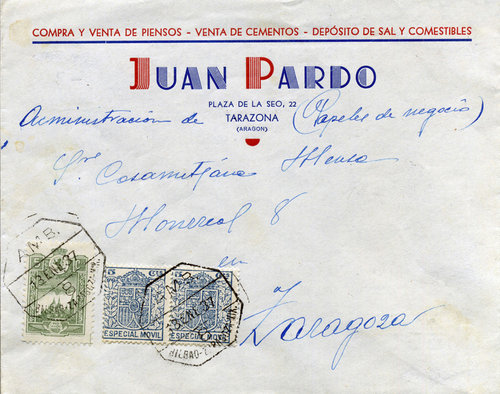 COMPRA Y VENTA DE PIENSOS - VENTA DE CEMENTOS - DEPÓSITO DE SAL Y COMESTIBLES
JUAN PARDO
PLAZA DE LA SEO, 22
TARAZONA
(ARAGON)
Administración de (Papeles de negocio)
Sres Casamitjana Mensa
Monreal 8
en
Zaragoza
A.M.B.
13 ENE 37
5 Cts
ESPECIAL MOVIL
A.M.B.
13 ENE 37
BILBAO
ESPECIAL MOVIL